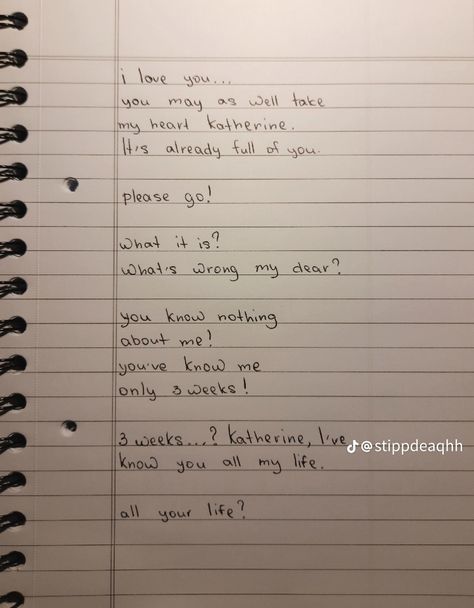 i love you...
you may as well take
my heart Katherine.
It's already full of you.
please go!
What it is?
What's wrong my dear?
you know nothing
about me!
you've know me
only 3 weeks!
3 weeks...? Katherine, I've
know you all my life.
all your life?
@stippdeaqhh